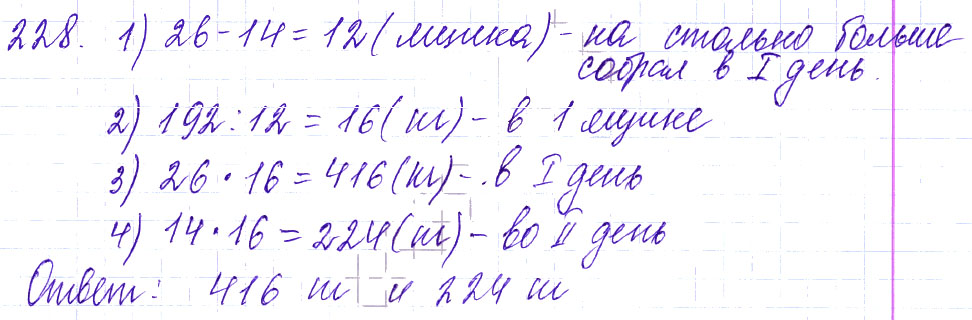 228. 1) 26-14=12 (ящика) - на столько больше
собрал в I день.
2) 192:12=16 (кг) - в 1 ящике
3) 26·16=416 (кг) - в I день
4) 14·16=224 (кг) - во II день
Ответ: 416 кг и 224 кг